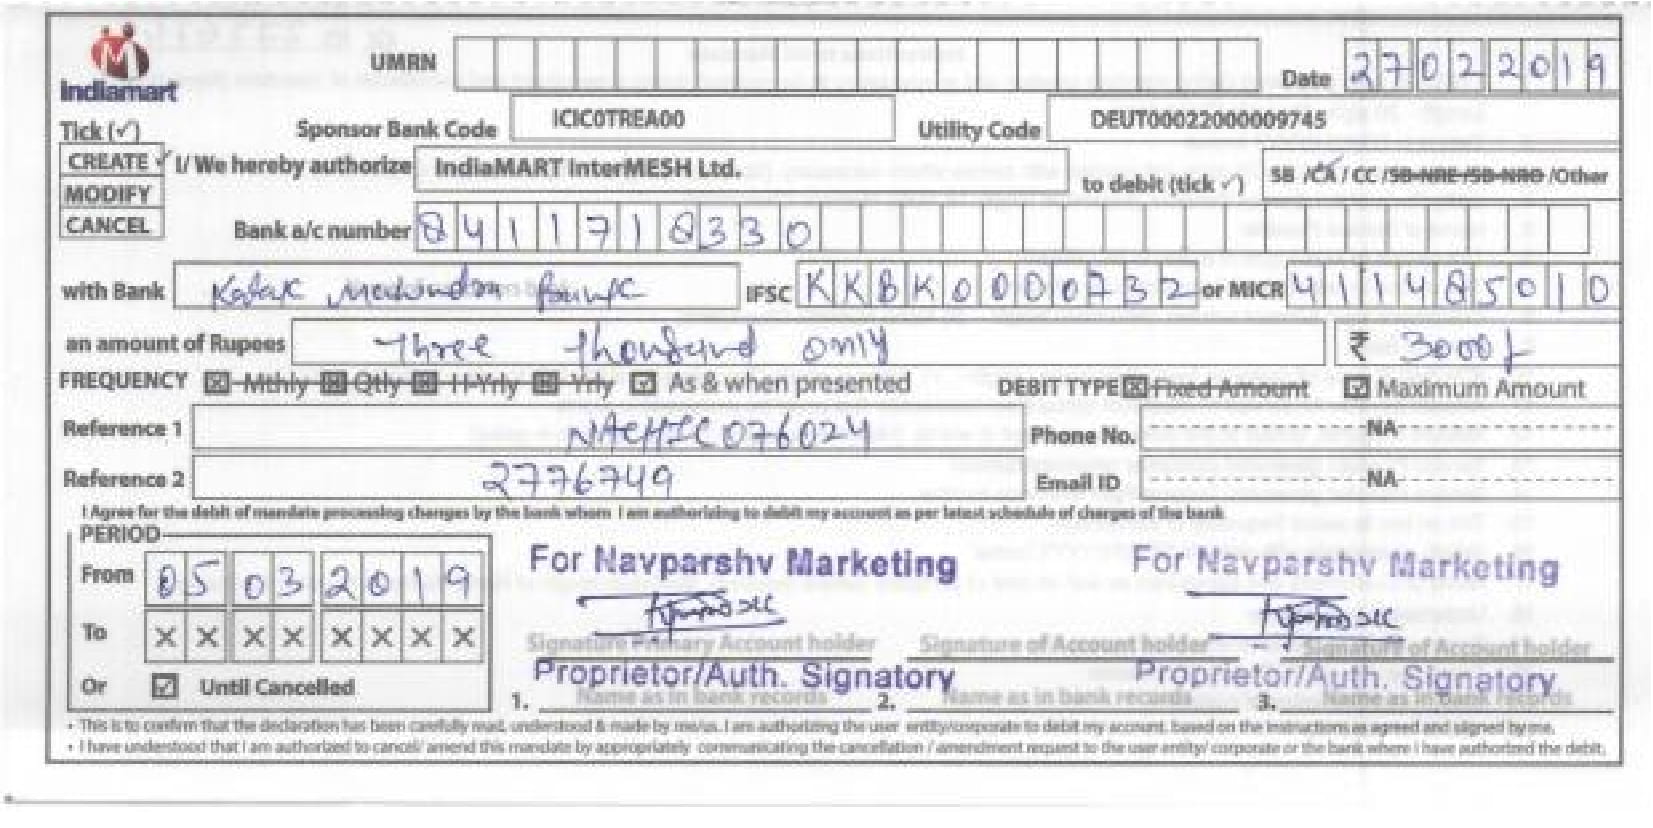 indiamart
UMRN
Date 27022019
Tick (✓) Sponsor Bank Code ICIC0TREA00 Utility Code DEUT00022000009745
CREATE ✓ I/ We hereby authorize IndiaMART InterMESH Ltd. to debit (tick ✓) SB /CA / CC /SB-NRE /SB-NRO /Other
MODIFY
CANCEL Bank a/c number 8411718330
with Bank Kotak Mahindra Bank IFSC KKBK0000732 or MICR 411485010
an amount of Rupees Three thousand only ₹ 3000/-
FREQUENCY ☒ Mthly ☒ Qtly ☒ H-Yrly ☒ Yrly ☑ As & when presented DEBIT TYPE ☒ Fixed Amount ☑ Maximum Amount
Reference 1 NACHIC076024 Phone No. NA
Reference 2 2776749 Email ID NA
I Agree for the debit of mandate processing charges by the bank whom I am authorizing to debit my account as per latest schedule of charges of the bank
PERIOD
From 05032019
To XXXXXXXX
Or ☑ Until Cancelled
For Navparshv Marketing For Navparshv Marketing
Signature Primary Account holder Signature of Account holder Signature of Account holder
Proprietor/Auth. Signatory Proprietor/Auth. Signatory
1. Name as in bank records 2. Name as in bank records 3. Name as in bank records
• This is to confirm that the declaration has been carefully read, understood & made by me/us. I am authorizing the user entity/corporate to debit my account, based on the instructions as agreed and signed by me.
• I have understood that I am authorized to cancel/ amend this mandate by appropriately communicating the cancellation / amendment request to the user entity/ corporate or the bank where I have authorized the debit.